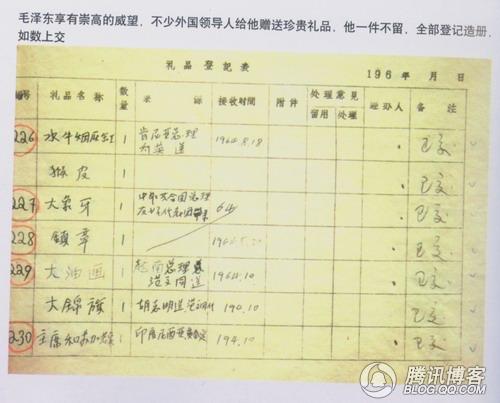 毛泽东享有崇高的威望，不少外国领导人给他赠送珍贵礼品，他一件不留，全部登记造册，
如数上交
礼品登记表
196 年 月 日
编号 礼品名称 数量 来源 接收时间 附件 处理意见 留用 处理 经办人 备注
226 水牛烟灰缸 1 肯尼亚总理 送 1964.8.18 已交
猴皮 1 已交
227 大象牙 1 64 已交
228 1 已交
229 大油画 1 越南总理 范文同送 1964.10 已交
大锦旗 1 胡志明送 194.10 已交
230 主席和 1 印度尼西亚 194.10 已交
腾讯博客
BLOG.QQ.COM